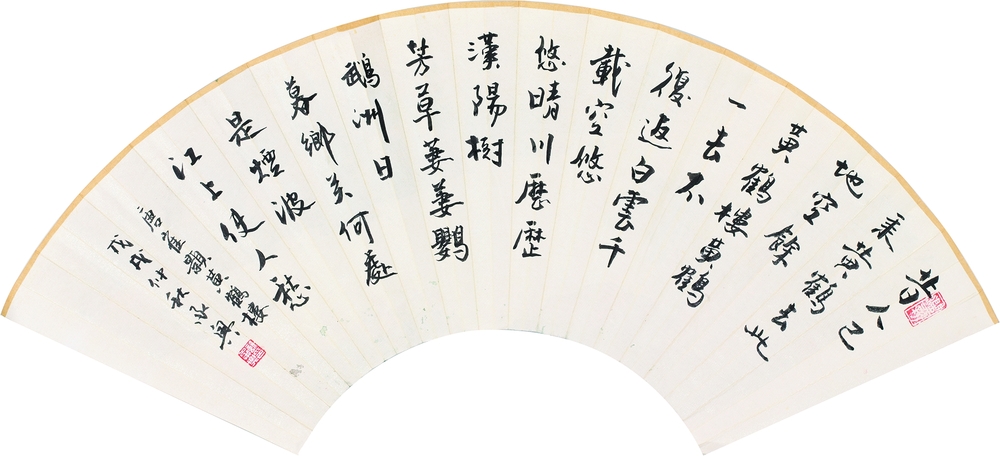 昔人已
乘黄鶴去此
地空餘
黃鶴樓黃鶴
一去不
復返白雲千
載空悠
悠晴川歷歷
漢陽樹
芳草萋萋鸚
鵡洲日
暮鄉关何處
是煙波
江上使人愁
唐崔顥黃鶴樓
戊戌仲秋